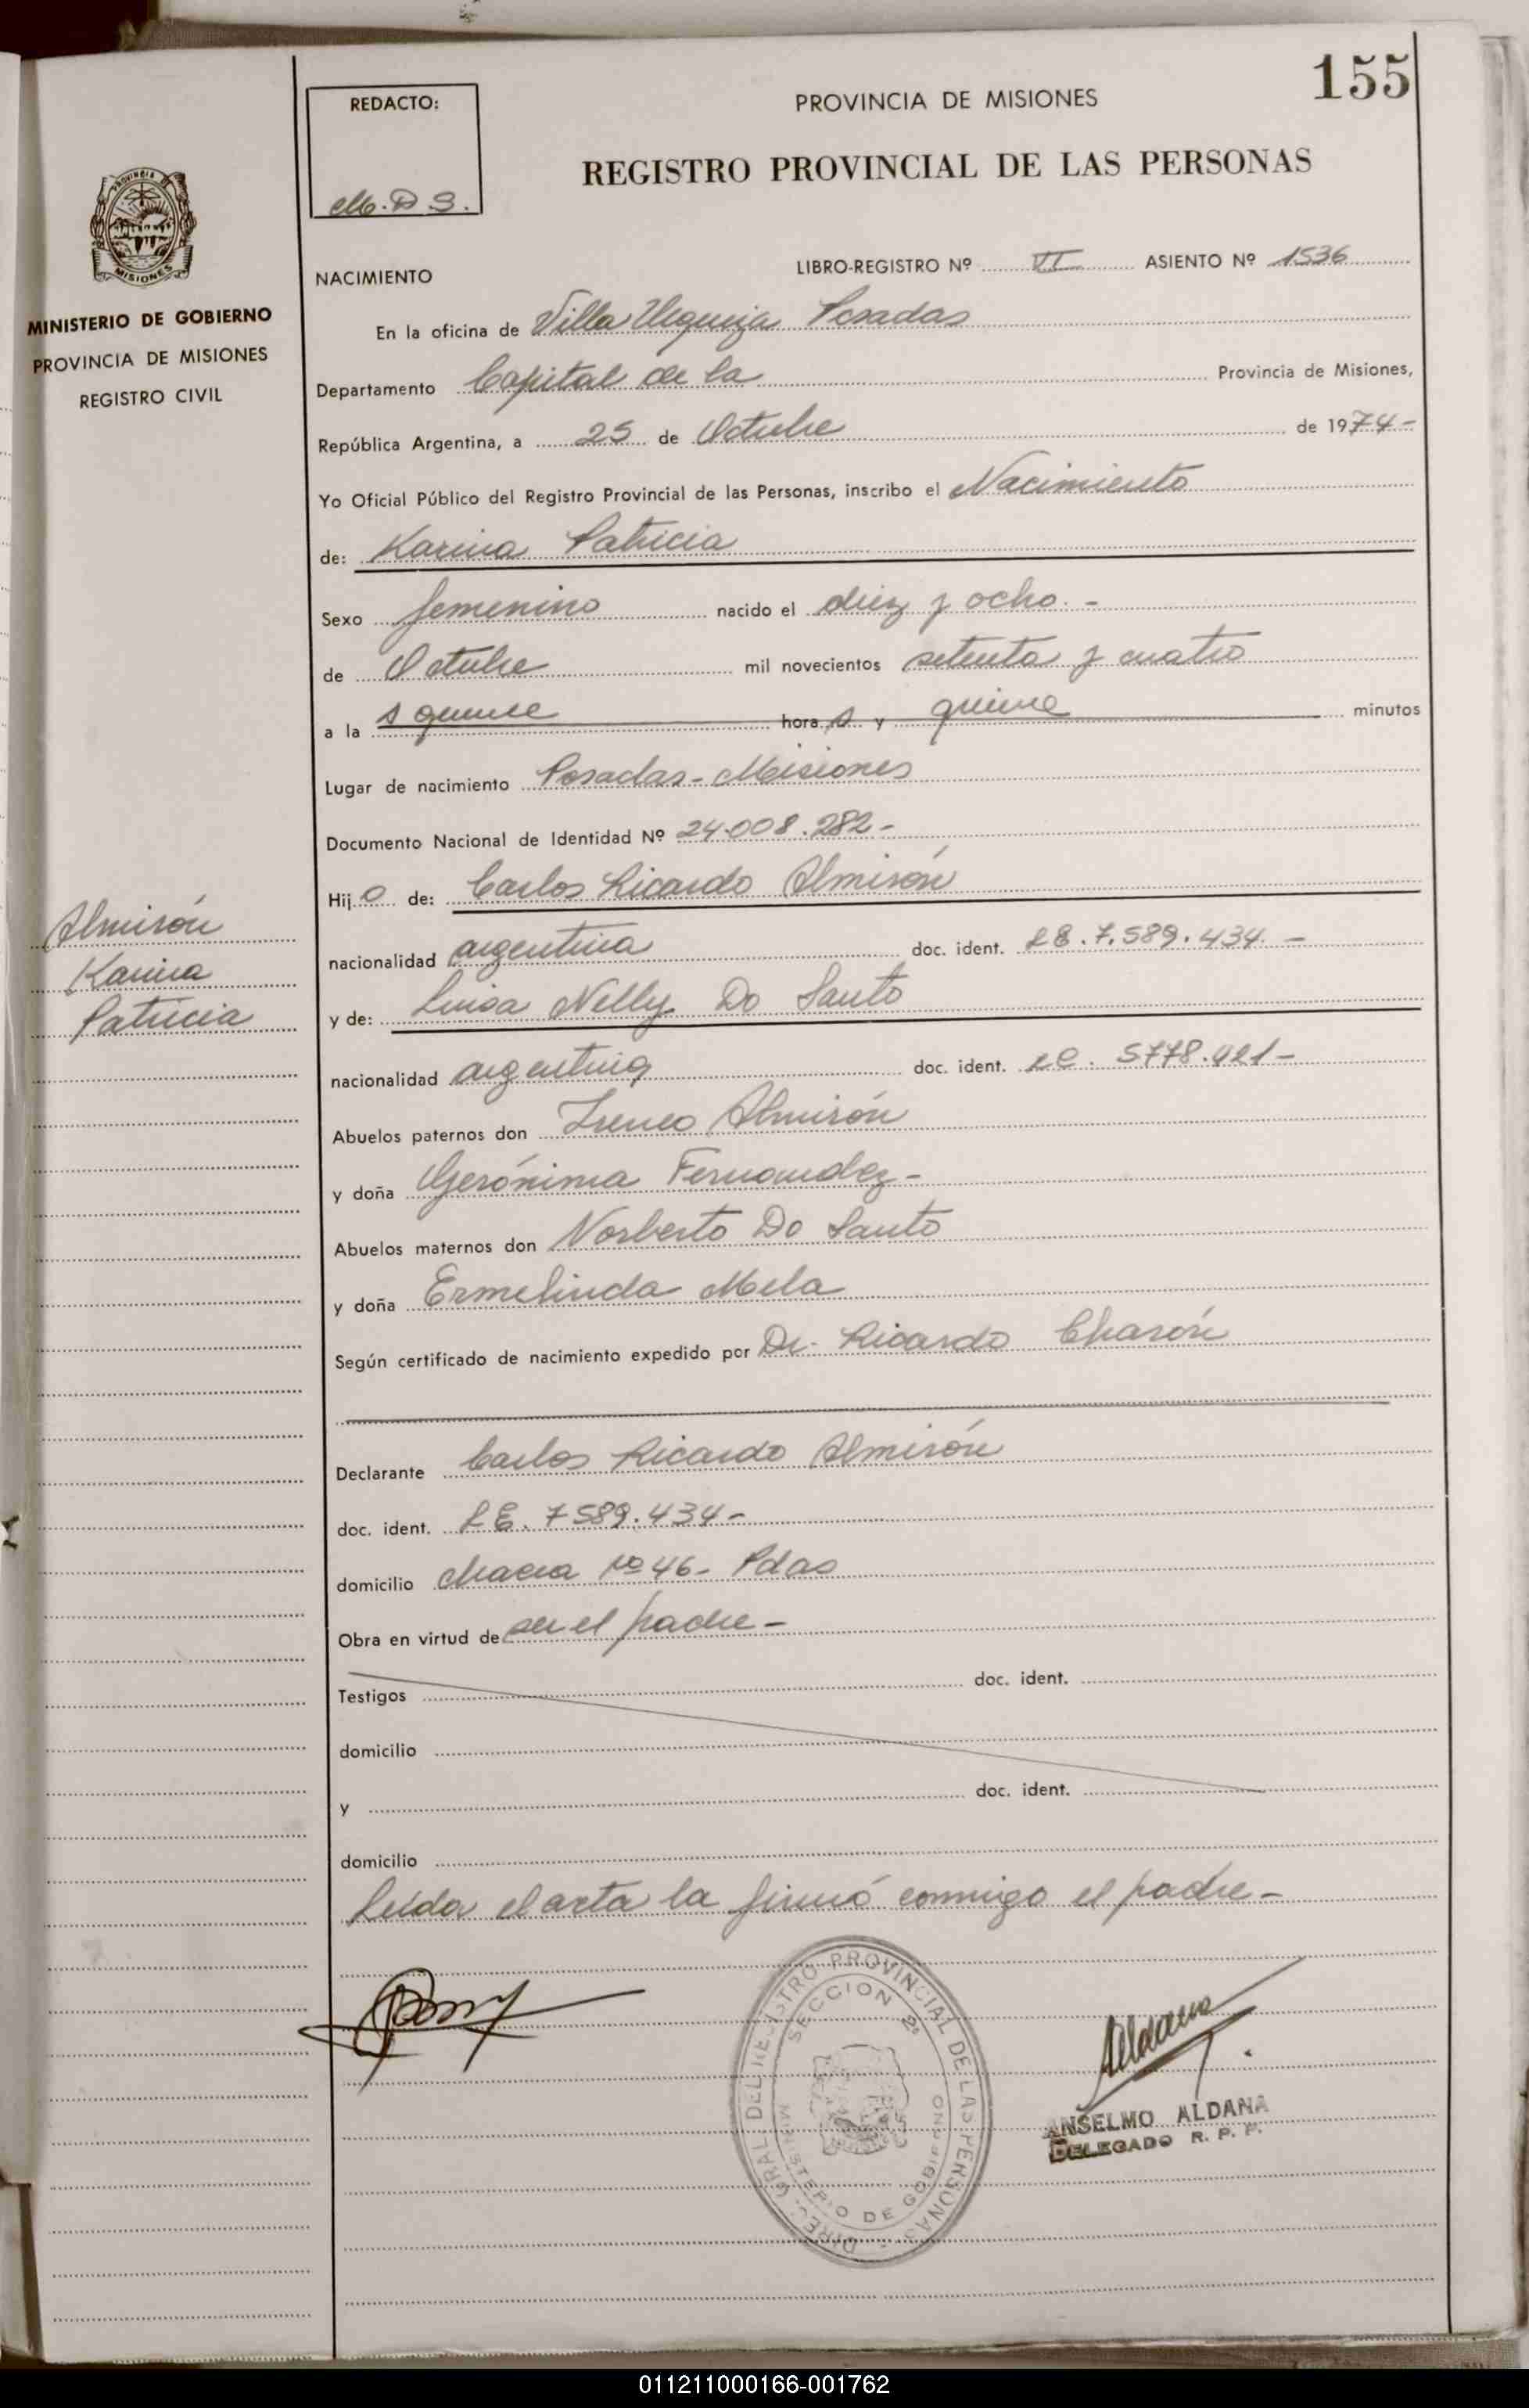 155
REDACTO:
M. D S.
PROVINCIA DE MISIONES
REGISTRO PROVINCIAL DE LAS PERSONAS
PROVINCIA DE
MISIONES
MINISTERIO DE GOBIERNO
PROVINCIA DE MISIONES
REGISTRO CIVIL
NACIMIENTO
LIBRO-REGISTRO Nº VI ASIENTO Nº 1536
En la oficina de Villa Urquiza Posadas
Departamento Capital de la Provincia de Misiones,
República Argentina, a 25 de Octubre de 1974-
Yo Oficial Público del Registro Provincial de las Personas, inscribo el Nacimiento
de: Karina Patricia
Sexo femenino nacido el diez y ocho.-
de Octubre mil novecientos setenta y cuatro
a la s quince hora s y quince minutos
Lugar de nacimiento Posadas-Misiones
Documento Nacional de Identidad Nº 24.008.282-
Hij o de: Carlos Ricardo Almirón
nacionalidad argentina doc. ident. LE.7.589.434.-
y de: Luisa Nelly Do Santo
nacionalidad argentina doc. ident. LC. 5778.421-
Abuelos paternos don Ireneo Almirón
y doña Gerónima Fernandez-
Abuelos maternos don Norberto Do Santo
y doña Ermelinda Mela
Según certificado de nacimiento expedido por Dr. Ricardo Charón
Declarante Carlos Ricardo Almirón
doc. ident. LE. 7589.434-
domicilio chacra Nº 46- Pdas
Obra en virtud de ser el padre-
Testigos doc. ident.
domicilio
y doc. ident.
domicilio
Leída el acta la firmó conmigo el padre-
Almirón
Karina
Patricia
DIREC. GRAL. DEL REGISTRO PROVINCIAL DE LAS PERSONAS
SECCION 2º
MINISTERIO DE GOBIERNO
Aldana
ANSELMO ALDANA
DELEGADO R. P. P.
011211000166-001762